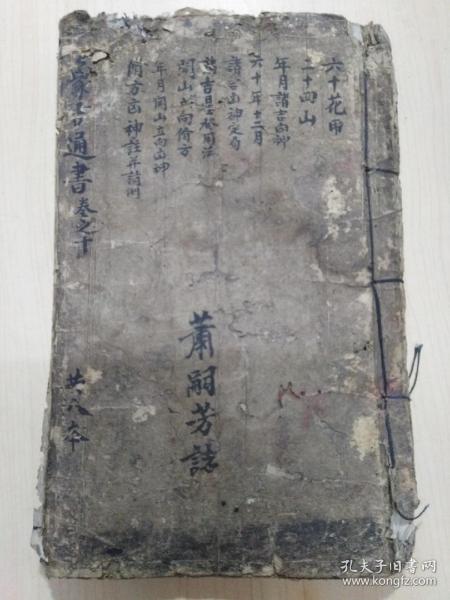 六十花甲
二十四山
年月諸吉凶神
六十年十二月
諸吉凶神定局
諸吉星竝用法
開山立向偹方
年月開山立向凶神
偹方凶神註并諸例
通書卷之十
共八本
蕭嗣芳誌
孔夫子旧书网
www.kongfz.com